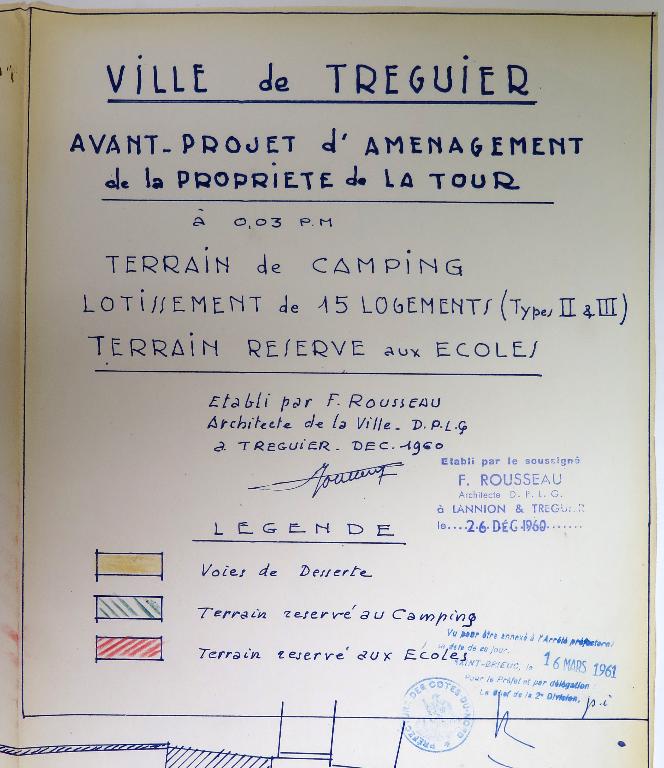 VILLE de TREGUIER
AVANT-PROJET d'AMENAGEMENT
de la PROPRIETE de LA TOUR
à 0,03 P.M
TERRAIN de CAMPING
LOTISSEMENT de 15 LOGEMENTS (Types II & III)
TERRAIN RESERVE aux ECOLES
Etabli par F. ROUSSEAU
Architecte de la Ville - D.P.L.G
à TREGUIER - DEC. 1960
Etabli par le soussigné
F. ROUSSEAU
Architecte D. P. L. G.
à LANNION & TREGUIER
le....26 DÉC 1960.......
LEGENDE
Voies de Desserte
Terrain reservé au Camping
Terrain reservé aux Ecoles
Vu pour être annexé à l'Arrêté préfectoral
en date de ce jour.
SAINT-BRIEUC, le 16 MARS 1961
Pour le Préfet et par délégation
Le Chef de la 2e Division, p.i
PREFECTURE DES COTES DU NORD